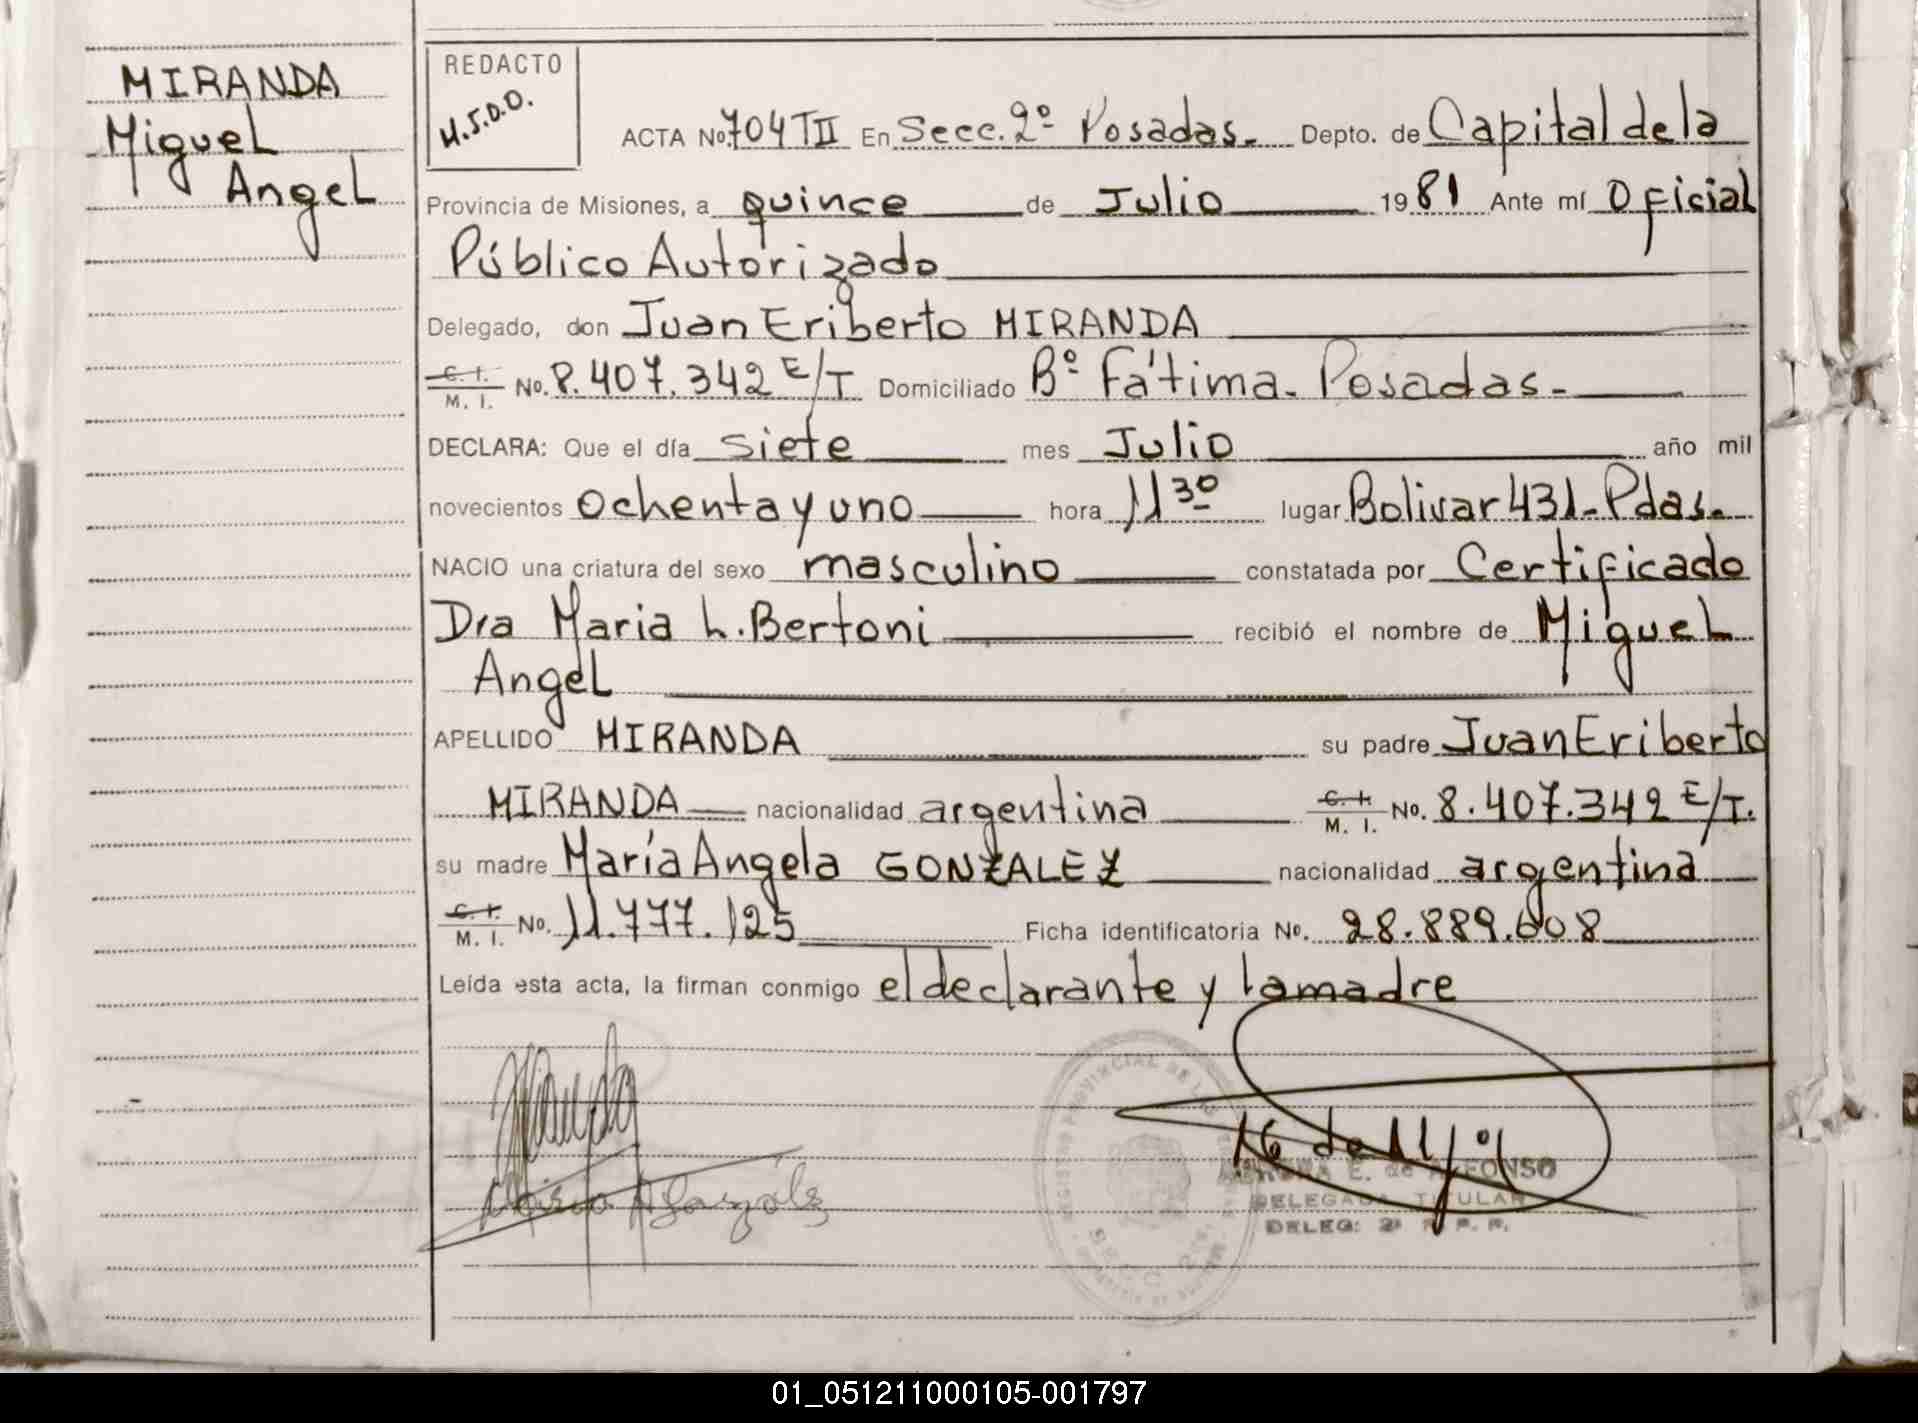 MIRANDA
Miguel
Angel
REDACTO
M.S.D.D.
ACTA No. 704 TII En Secc. 2º Posadas. Depto. de Capital de la
Provincia de Misiones, a quince de Julio 1981 Ante mí Oficial
Público Autorizado
Delegado, don Juan Eriberto MIRANDA
C. I.
M. I. No. 8.407.342 E/T Domiciliado Bº Fátima. Posadas.
DECLARA: Que el día siete mes Julio año mil
novecientos ochenta y uno hora 11 30 lugar Bolivar 431. Pdas.
NACIO una criatura del sexo masculino constatada por Certificado
Dra Maria L. Bertoni recibió el nombre de Miguel
Angel
APELLIDO MIRANDA su padre Juan Eriberto
MIRANDA nacionalidad argentina C. I. M. I. No. 8.407.342 E/T.
su madre María Angela GONZALEZ nacionalidad argentina
C. I. M. I. No. 11.777.125 Ficha identificatoria No. 28.889.608
Leída esta acta, la firman conmigo el declarante y la madre
REGISTRO PROVINCIAL DE LAS
E. de ALFONSO
DELEGADA TITULAR
DELEG: 2ª R. P. P.
01_051211000105-001797